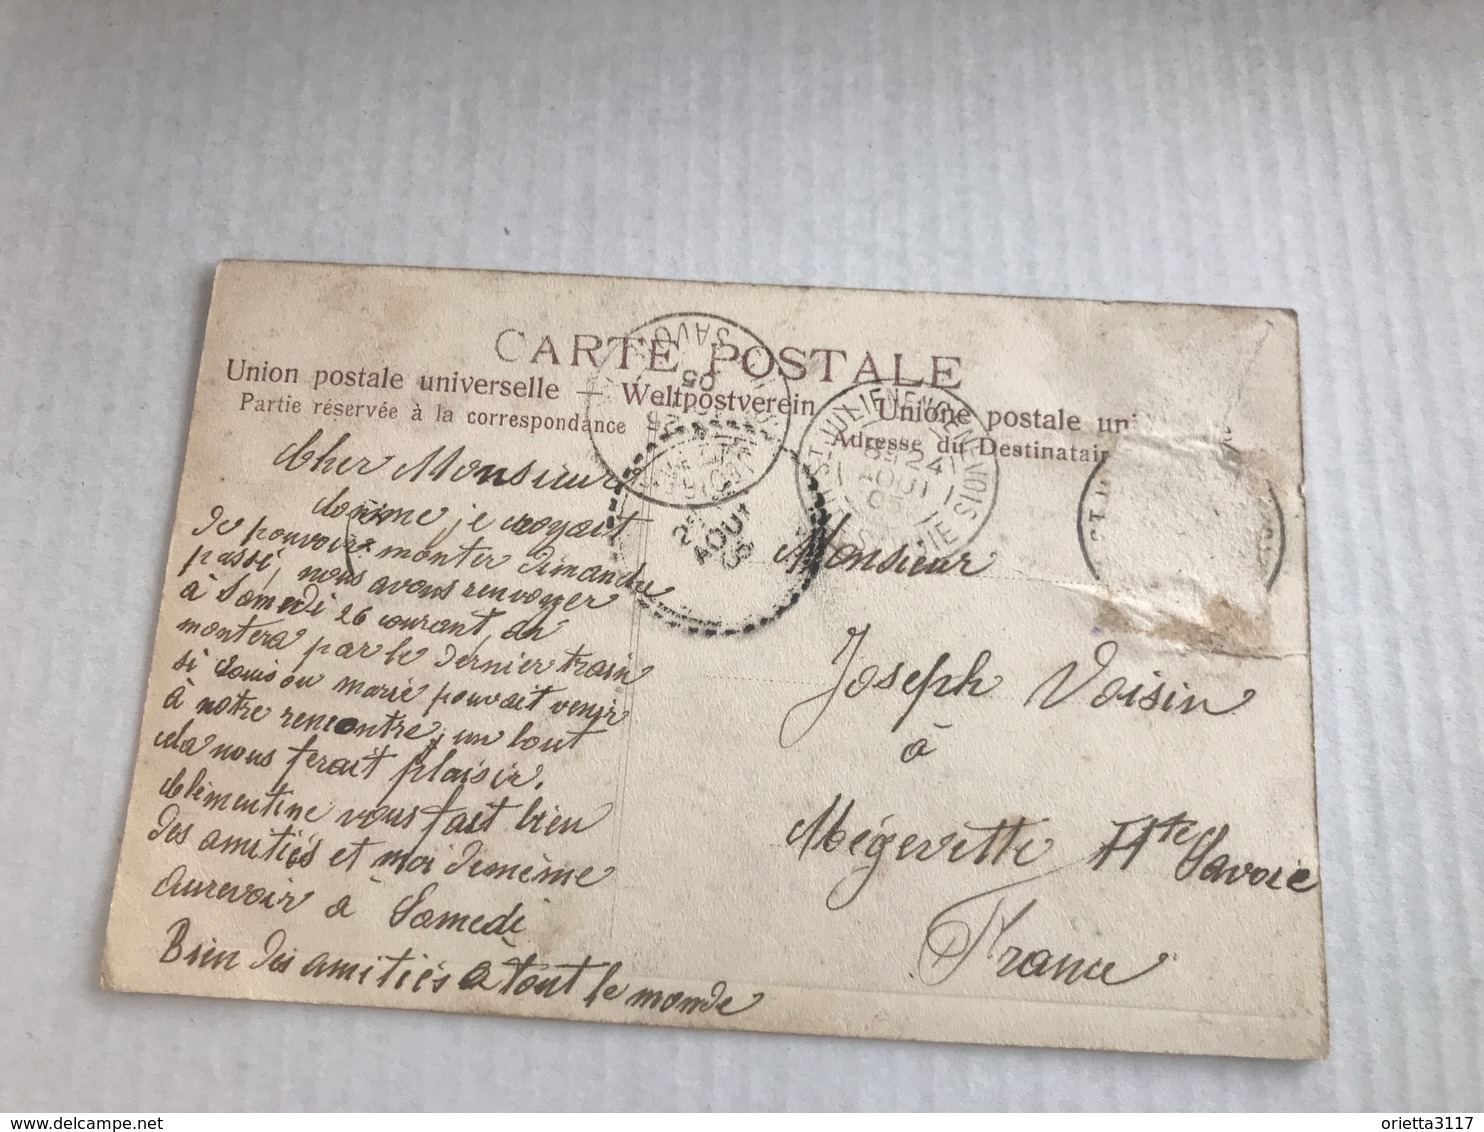 CARTE POSTALE
Union postale universelle — Weltpostverein Unione postale uni
Partie réservée à la correspondance
Adresse du Destinatair
Cher Monsieur
Comme je croyait
de pouvoir monter Dimanche
passé, nous avons renvoyer
à Samedi 26 courant, on
montera par le dernier train
si Louis ou marie pouvait venir
à notre rencontre, un bout
cela nous ferait plaisir.
Clémentine vous fait bien
des amitiés et moi demême
aurevoir à Samedi
Bien des amitiés à tout le monde
Monsieur
Joseph Voisin
à
Mégevette Hte Savoie
France
ST JULIEN EN GENEVOIS
24
AOUT
05
SAVOIE
SAVO
05
25
AOUT
05
orietta3117